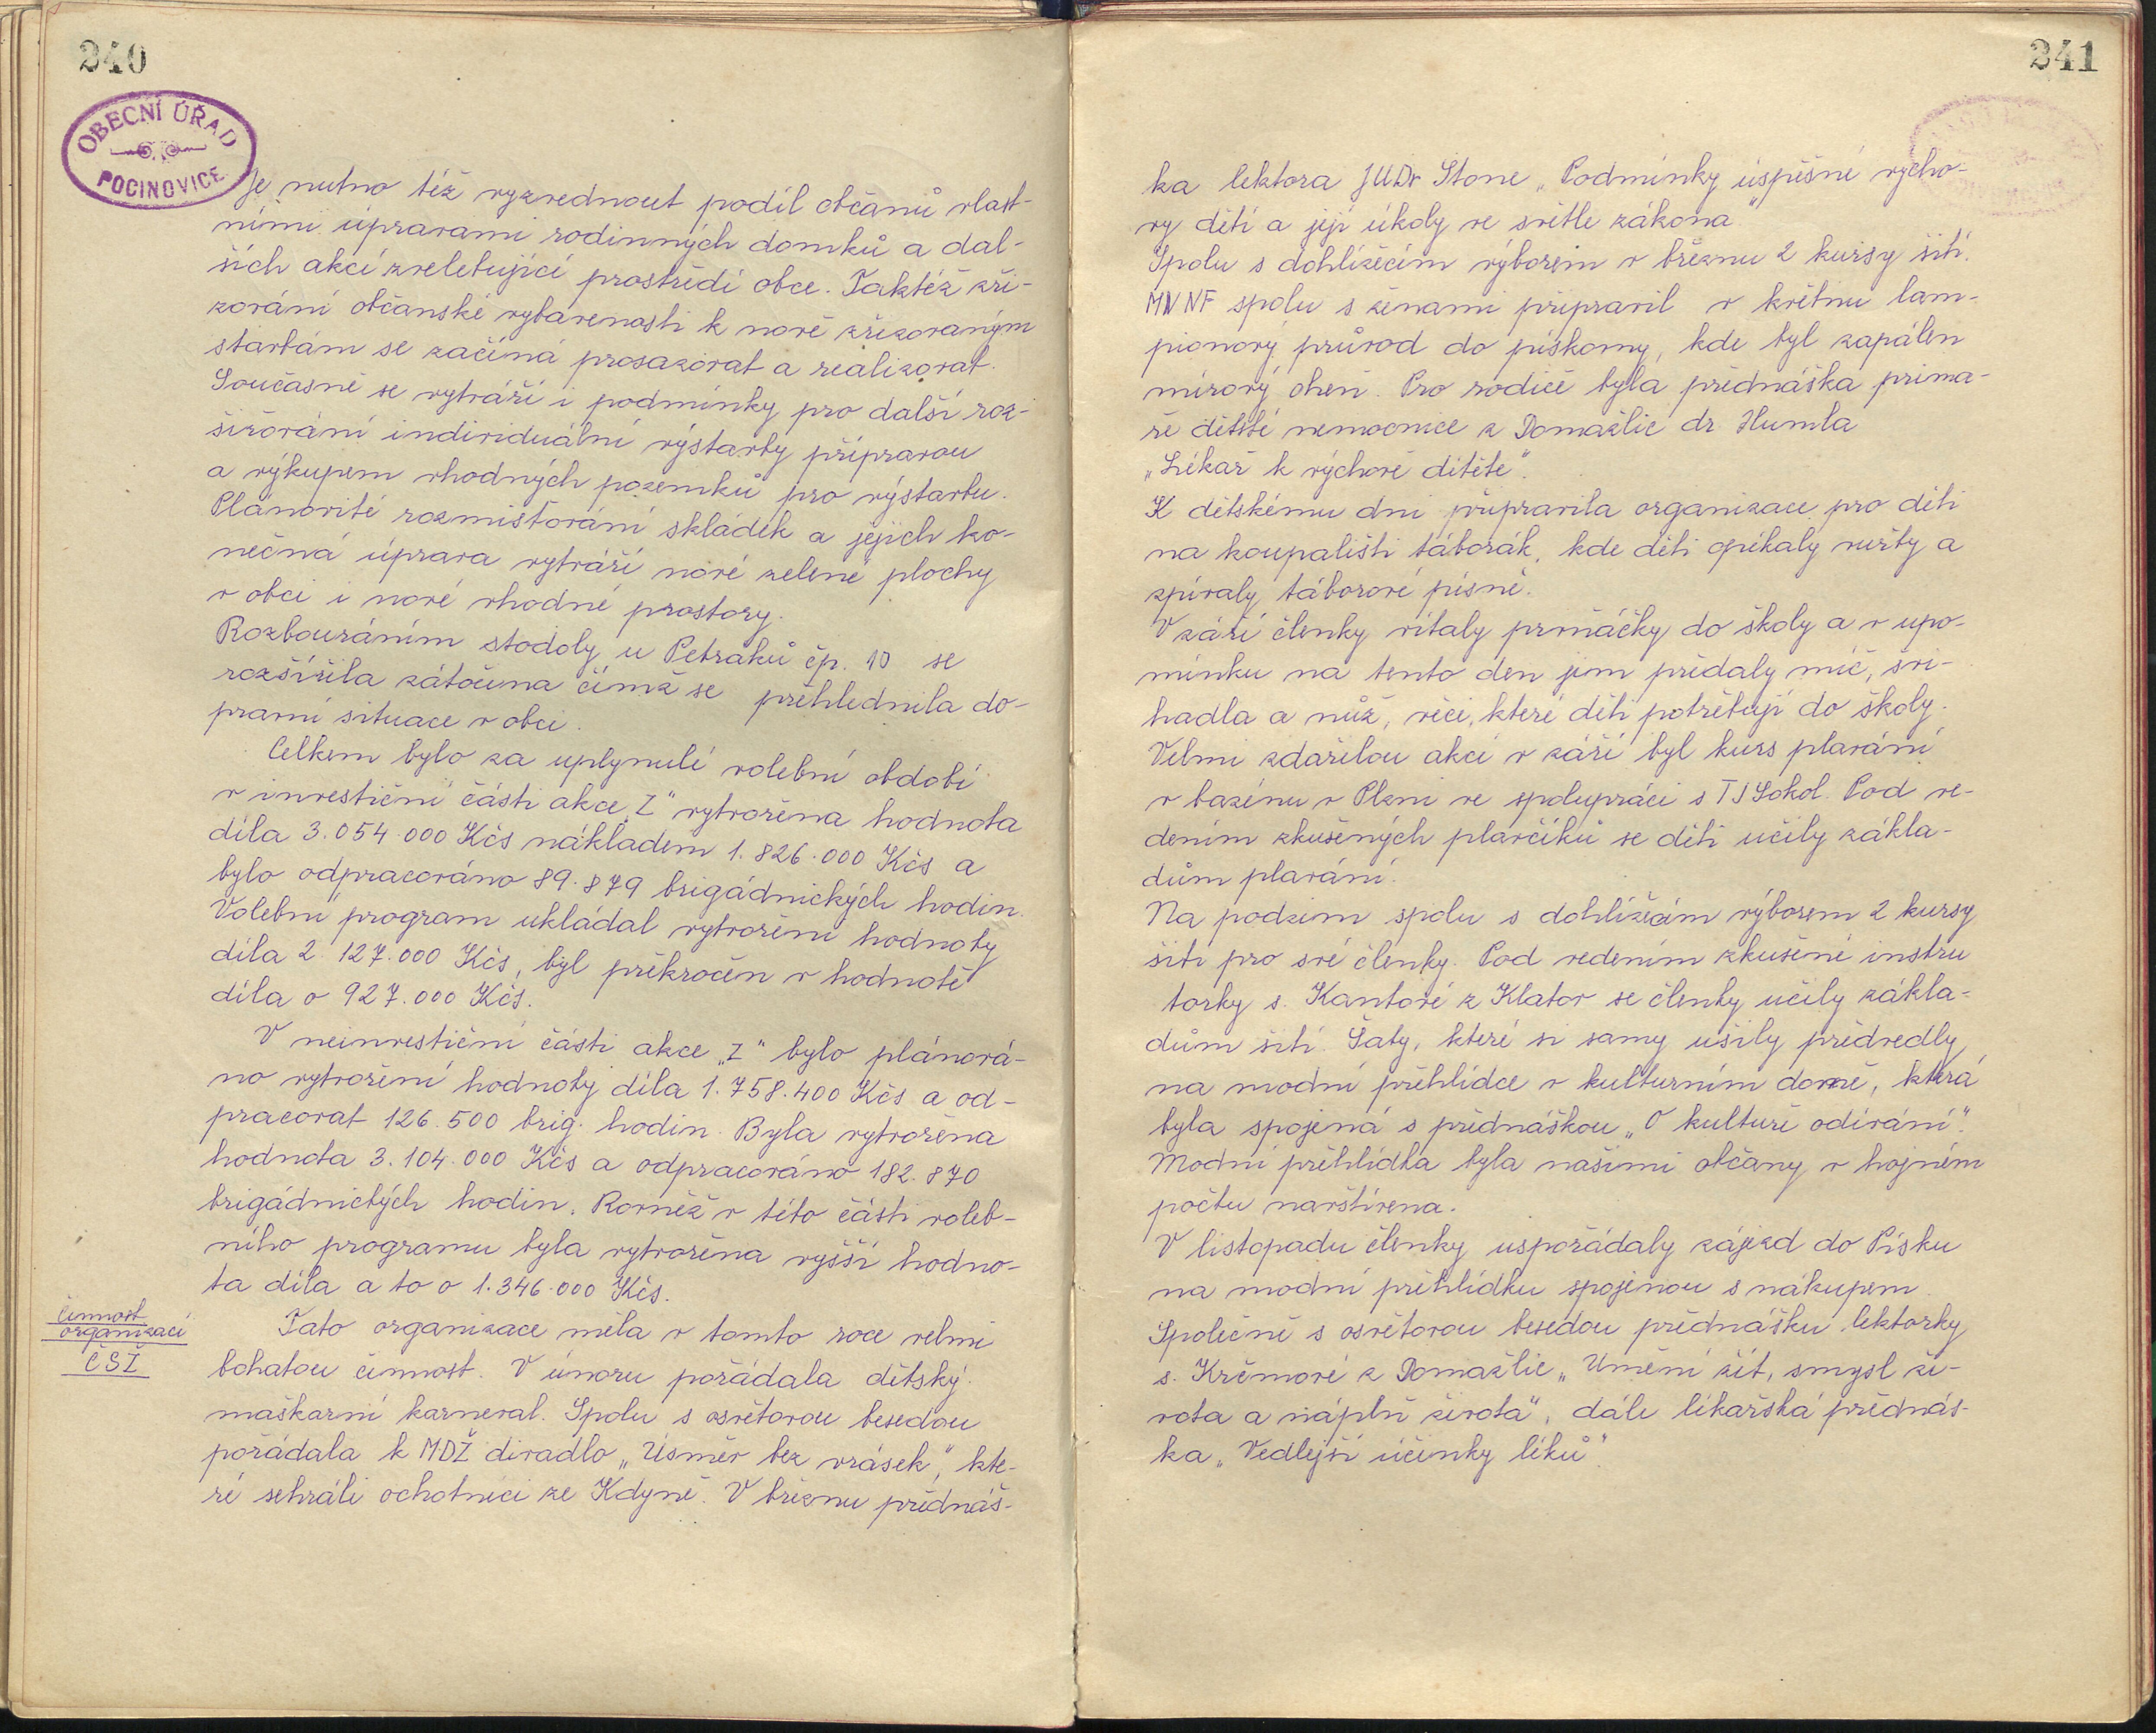 240
OBECNÍ ÚŘAD
POCINOVICE
Je nutno též vyzvednout podíl občanů vlast-
ními úpravami rodinných domků a dal-
ších akcí zvelebující prostředí obce. Taktéž zři-
zování občanské vybavenosti k nově zřizovaným
stavbám se začíná prosazovat a realizovat.
Současně se vytváří i podmínky pro další roz-
šiřování individuální výstavby přípravou
a výkupem vhodných pozemků pro výstavbu.
Plánovité rozmisťování skládek a jejich ko-
nečná úprava vytváří nové zelené plochy
v obci i nové vhodné prostory.
Rozbouráním stodoly u Petraků čp. 10 se
rozšířila zátočina čímž se přehlednila do-
pravní situace v obci.
Celkem bylo za uplynulé volební období
v investiční části akce „Z" vytvořena hodnota
díla 3.054.000 Kčs nákladem 1.826.000 Kčs a
bylo odpracováno 89.879 brigádnických hodin.
Volební program ukládal vytvoření hodnoty
díla 2.127.000 Kčs, byl překročen v hodnotě
díla o 927.000 Kčs.
V neinvestiční části akce „Z" bylo plánová-
no vytvoření hodnoty díla 1.758.400 Kčs a od-
pracovat 126.500 brig. hodin. Byla vytvořena
hodnota 3.104.000 Kčs a odpracováno 182.870
brigádnických hodin. Rovněž v této části voleb-
ního programu byla vytvořena vyšší hodno-
ta díla a to o 1.346.000 Kčs.
činnost
organizací
ČSŽ
Tato organizace měla v tomto roce velmi
bohatou činnost. V únoru pořádala dětský
maškarní karneval. Spolu s osvětovou besedou
pořádala k MDŽ divadlo „Úsměv bez vrásek", kte-
ré sehráli ochotníci ze Kdyně. V březnu přednáš-
241
ka lektora JUDr Stone „Podmínky úspěšné výcho-
vy dětí a její úkoly ve světle zákona"
Spolu s dohlížecím výborem v březnu 2 kursy šití.
MV NF spolu s ženami připravil v květnu lam-
pionový průvod do pískovny, kde byl zapálen
mírový oheň. Pro rodiče byla přednáška primá-
ře dětské nemocnice z Domažlic dr Humla
„Lékař k výchově dítěte".
K dětskému dni připravila organizace pro děti
na koupališti táborák, kde děti opékaly vuřty a
zpívaly táborové písně.
V září členky vítaly prvňáčky do školy a v upo-
mínku na tento den jim předaly míč, švi-
hadla a nůž, věci, které děti potřebují do školy.
Velmi zdařilou akcí v září byl kurs plavání
v bazénu v Plzni ve spolupráci s TJ Sokol. Pod ve-
dením zkušených plavčíků se děti učily zákla-
dům plavání.
Na podzim spolu s dohlížecím výborem 2 kursy
šití pro své členky. Pod vedením zkušené instru
torky s. Kantové z Klatov se členky učily zákla-
dům šití. Šaty, které si samy ušily předvedly
na modní přehlídce v kulturním domě, která
byla spojená s přednáškou „O kultuře odívání".
Modní přehlídka byla našimi občany v hojném
počtu navštívena.
V listopadu členky uspořádaly zájezd do Písku
na modní přehlídku spojenou s nákupem
Společně s osvětovou besedou přednášku lektorky
s. Krčmové z Domažlic „Umění žít, smysl ži-
vota a náplň života", dále lékařská přednáš-
ka „Vedlejší účinky léků".